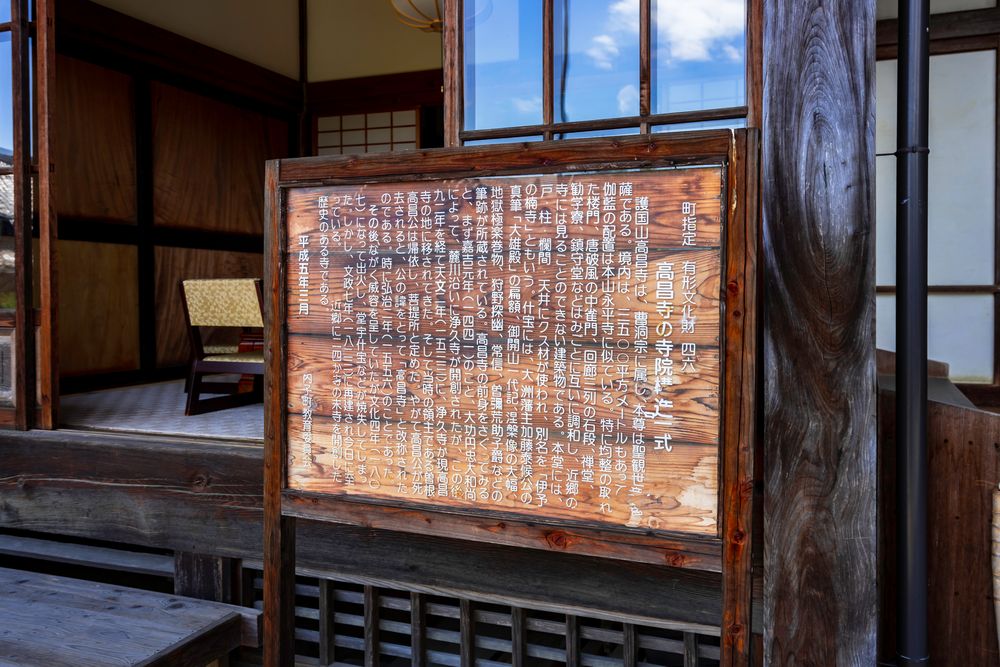 町指定　有形文化財　四六
高昌寺の寺院構造一式
護国山高昌寺は、曹洞宗に属し、本尊は聖観世音菩
薩である。境内は、二五〇〇平方メートルもあって
伽藍の配置は本山永平寺に似ている。特に均整の取れ
た楼門、唐破風の中雀門、回廊三列の石段、禅堂、
勧学寮、鎮守堂などはみごとに互いに調和し、近郷の
寺には見ることのできない建築物である。本堂には、
戸、柱、欄間、天井にクス材が使われ、別名を「伊予
の楠寺」ともいう。什宝には、大洲藩主加藤泰候公の
真筆「大雄殿」の扁額、御開山一代記、涅槃像の大幅、
地獄極楽巻物、狩野探幽、常信、曽禰荒助子爵などの
筆跡が所蔵されている。高昌寺の前身をさぐってみる
と、まず嘉吉元年（一四四一）のこと、大功円忠大和尚
によって、麓川沿いに浄久寺が開創されたが、この後、
九二年を経て天文二年（一五三三）に、浄久寺が現高昌
寺の地に移されてきた。そして当時の領主である曽根
高昌公は帰依し、菩提所と定めた。やがて高昌公が死
去されると、公の諱をとって「高昌寺」と改称された
のである。時に弘治二年（一五五六）のことであった。
その後ながく威容を呈していたが文化四年（一八〇
七）になって出火し、堂宇什宝などが焼失してしまっ
た。しかし、文政七年（一八二二）に再建され今日に至
っている。近郷に二四か寺の末寺を開創した
歴史のある寺である。
平成五年三月
内子町教育委員会